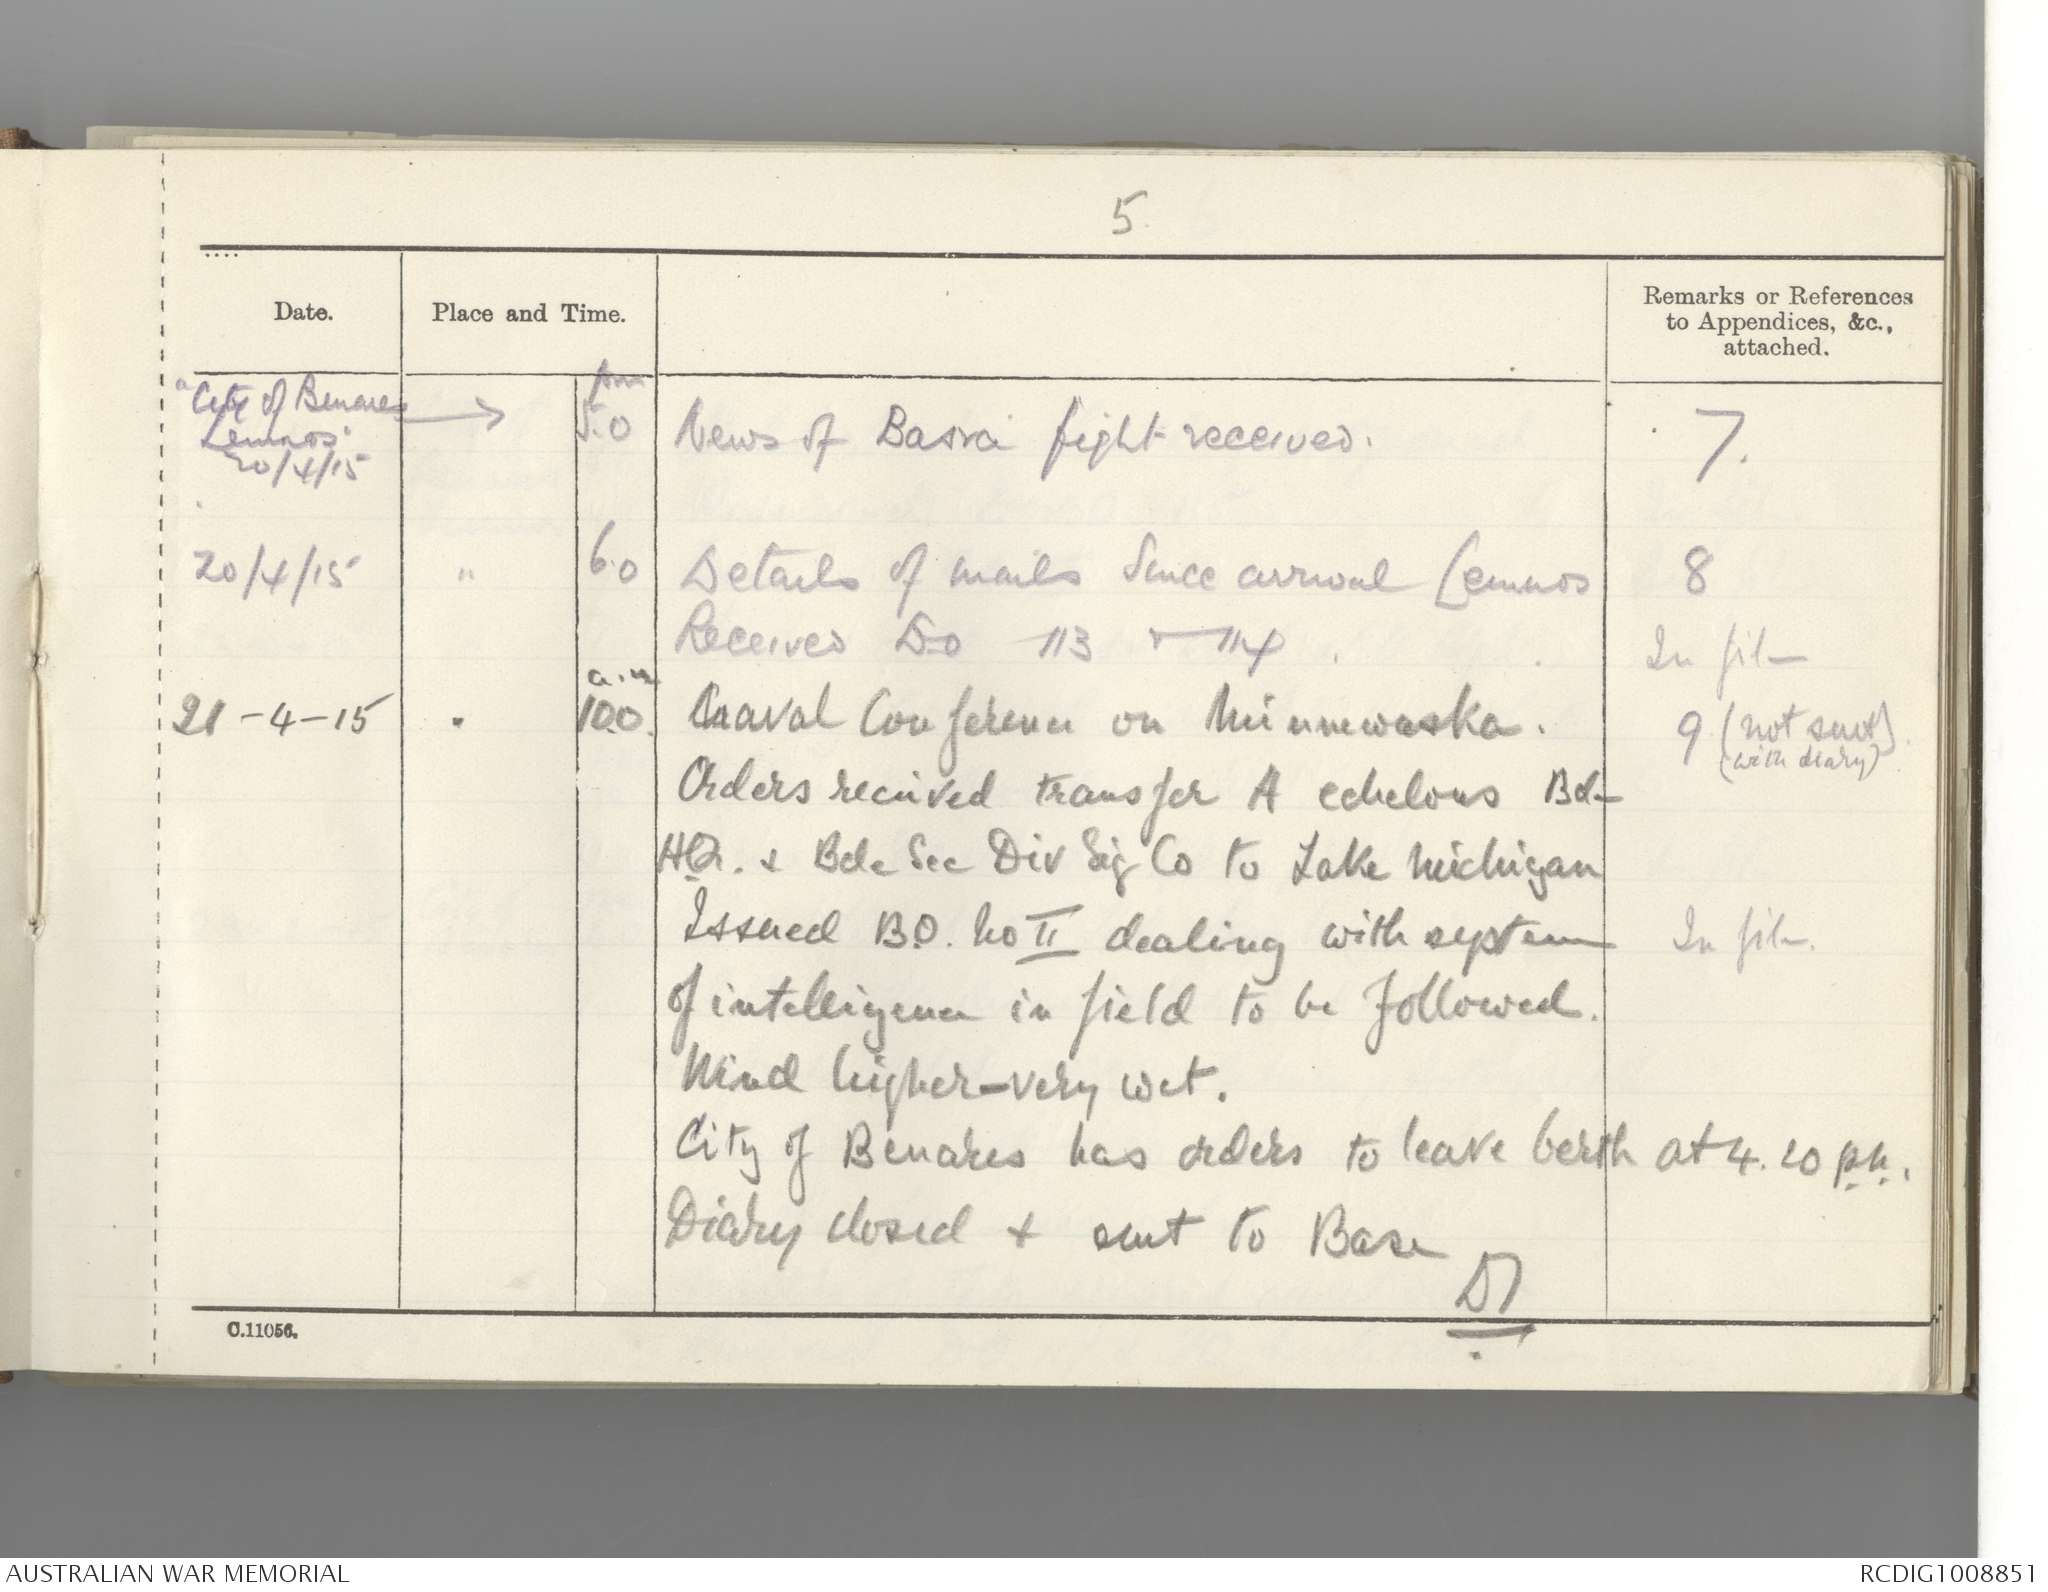 5.
Date.
Place and Time.
Remarks or References
to Appendices, &c.,
attached.
"City of Benares
Lemnos"
20/4/15
pm
5.0
News of Basra fight received.
7.
20/4/15
"
6.0
Details of mails since arrival Lemnos
8
Received DO 113 114
In file
21-4-15
"
a.m
10.0.
Naval Conference on Minnewaska.
9 (not sent)
(with diary)
Orders received transfer A echelons Bde
HQr. & Bde Sec Div Sig Co to Lake Michigan
Issued B.O. No II dealing with system
In file.
of intelligence in field to be followed.
Wind higher - very wet.
City of Benares has orders to leave berth at 4.20 p.m.
Diary closed & sent to Base
C.11056.
AUSTRALIAN WAR MEMORIAL
RCDIG1008851